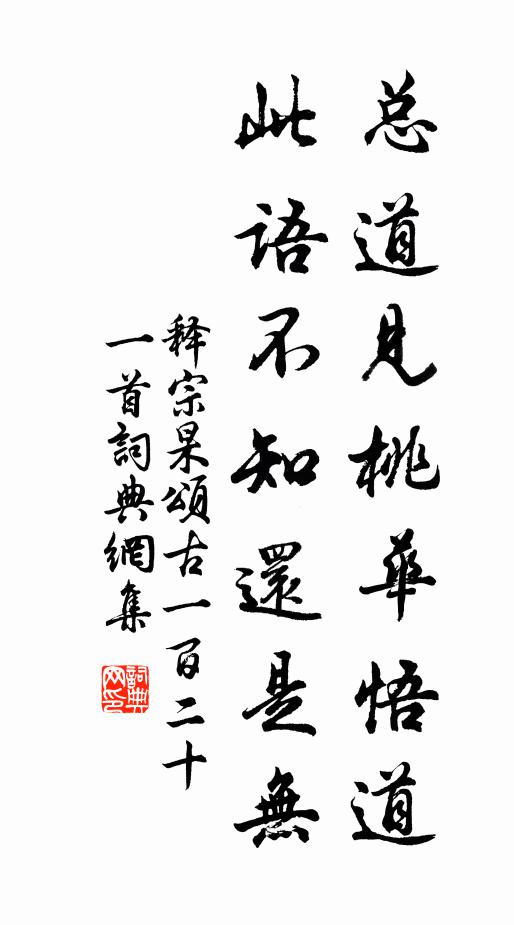 总道见桃華悟道
此語不知還是無
释宗杲頌古一百二十
一首詞典網集
詞典网印